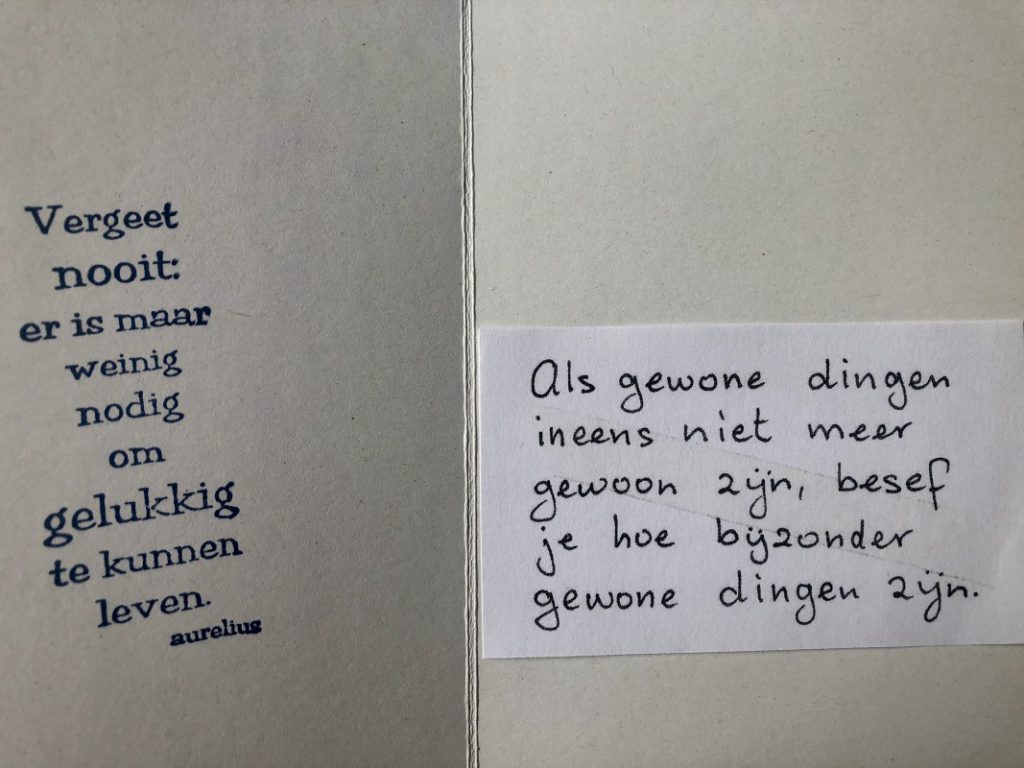 Vergeet
nooit:
er is maar
weinig
nodig
om
gelukkig
te kunnen
leven.
aurelius
Als gewone dingen
ineens niet meer
gewoon zijn, besef
je hoe bijzonder
gewone dingen zijn.